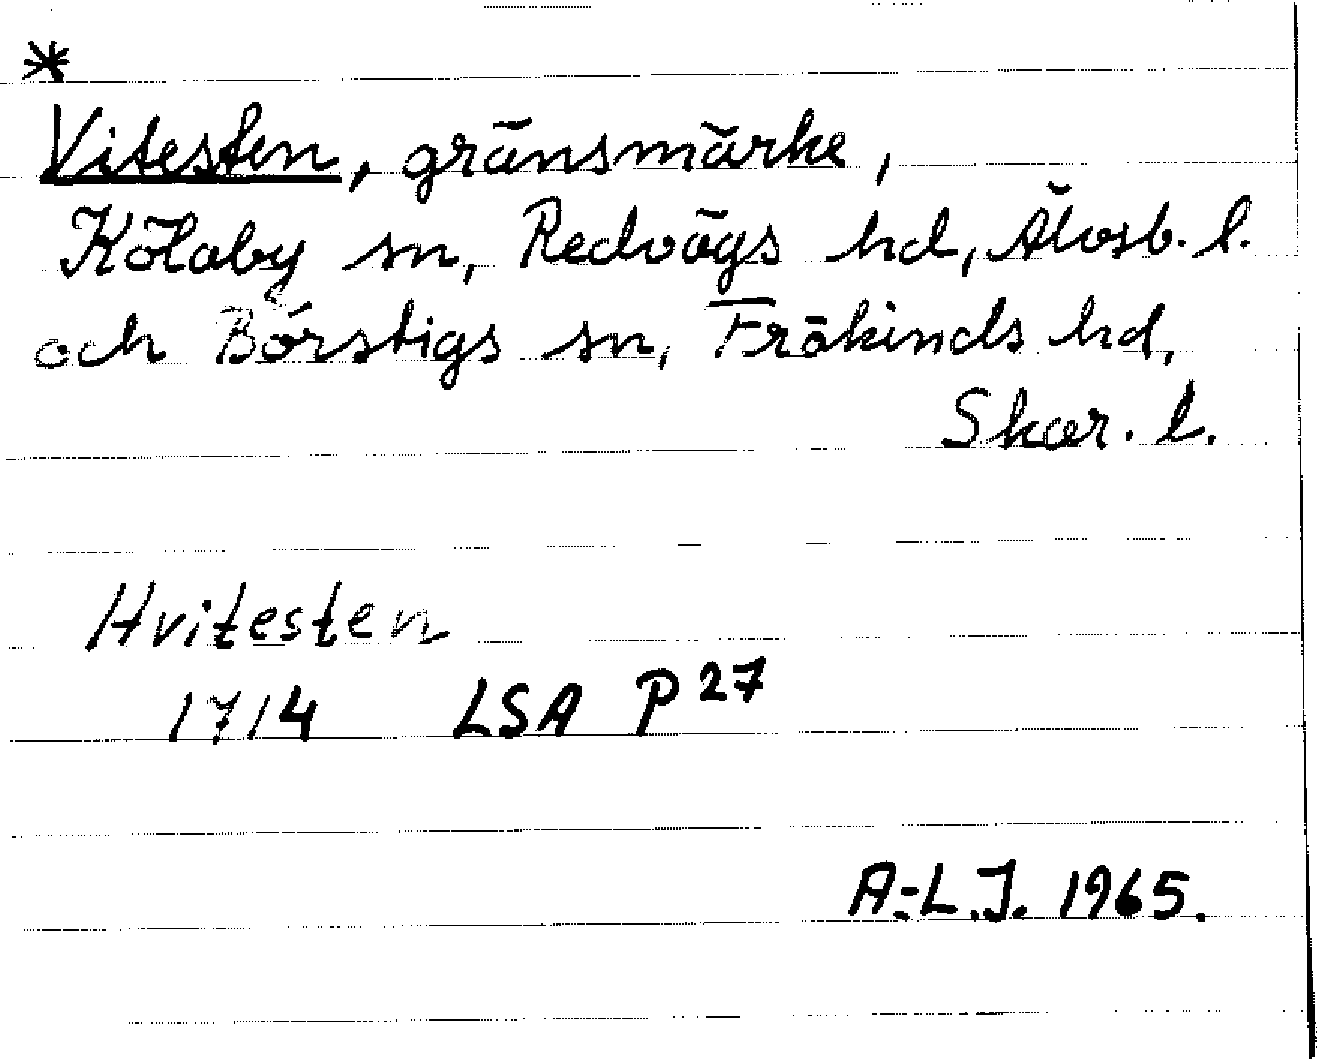 *
Vitesten, gränsmärke,
Kölaby sn, Redvägs hd, Älvsb. l.
och Börstigs sn, Frökinds hd,
Skar. l.
Hvitesten
1714 LSA P 27
A.-L.J. 1965.